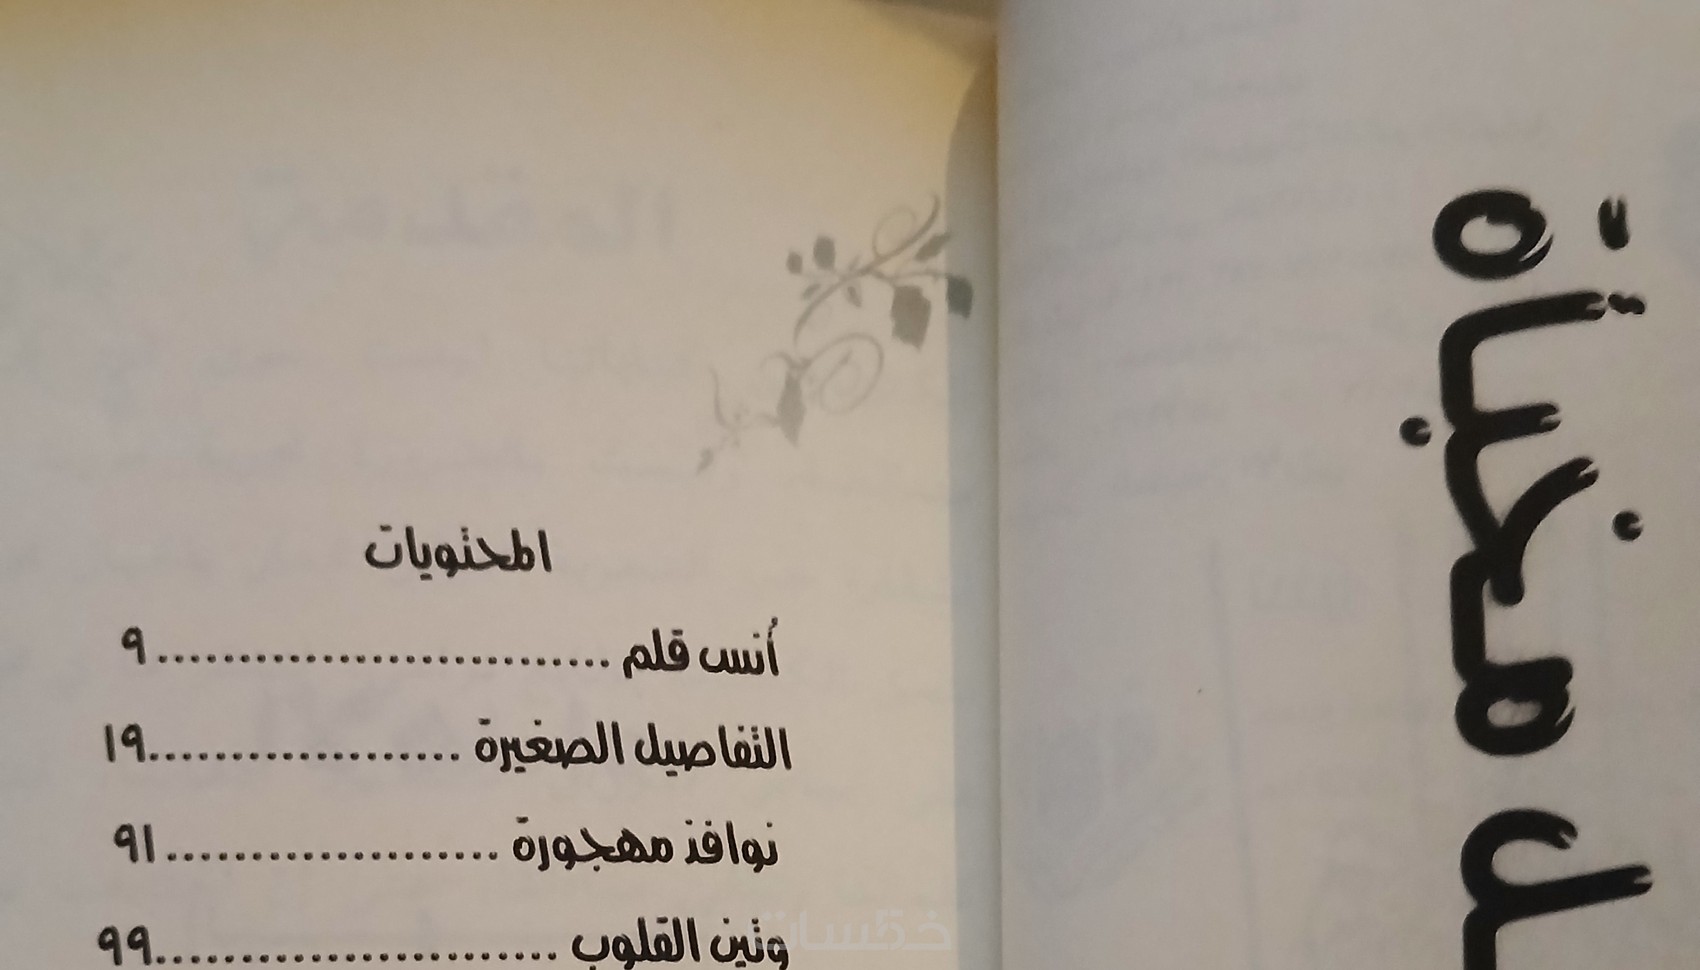 المحتويات
أنس قلم ............................ ٩
التفاصيل الصغيرة ................... ١٩
نوافذ مهجورة .................... ٩١
وتين القلوب ........................ ٩٩
مخبأة
خمسات